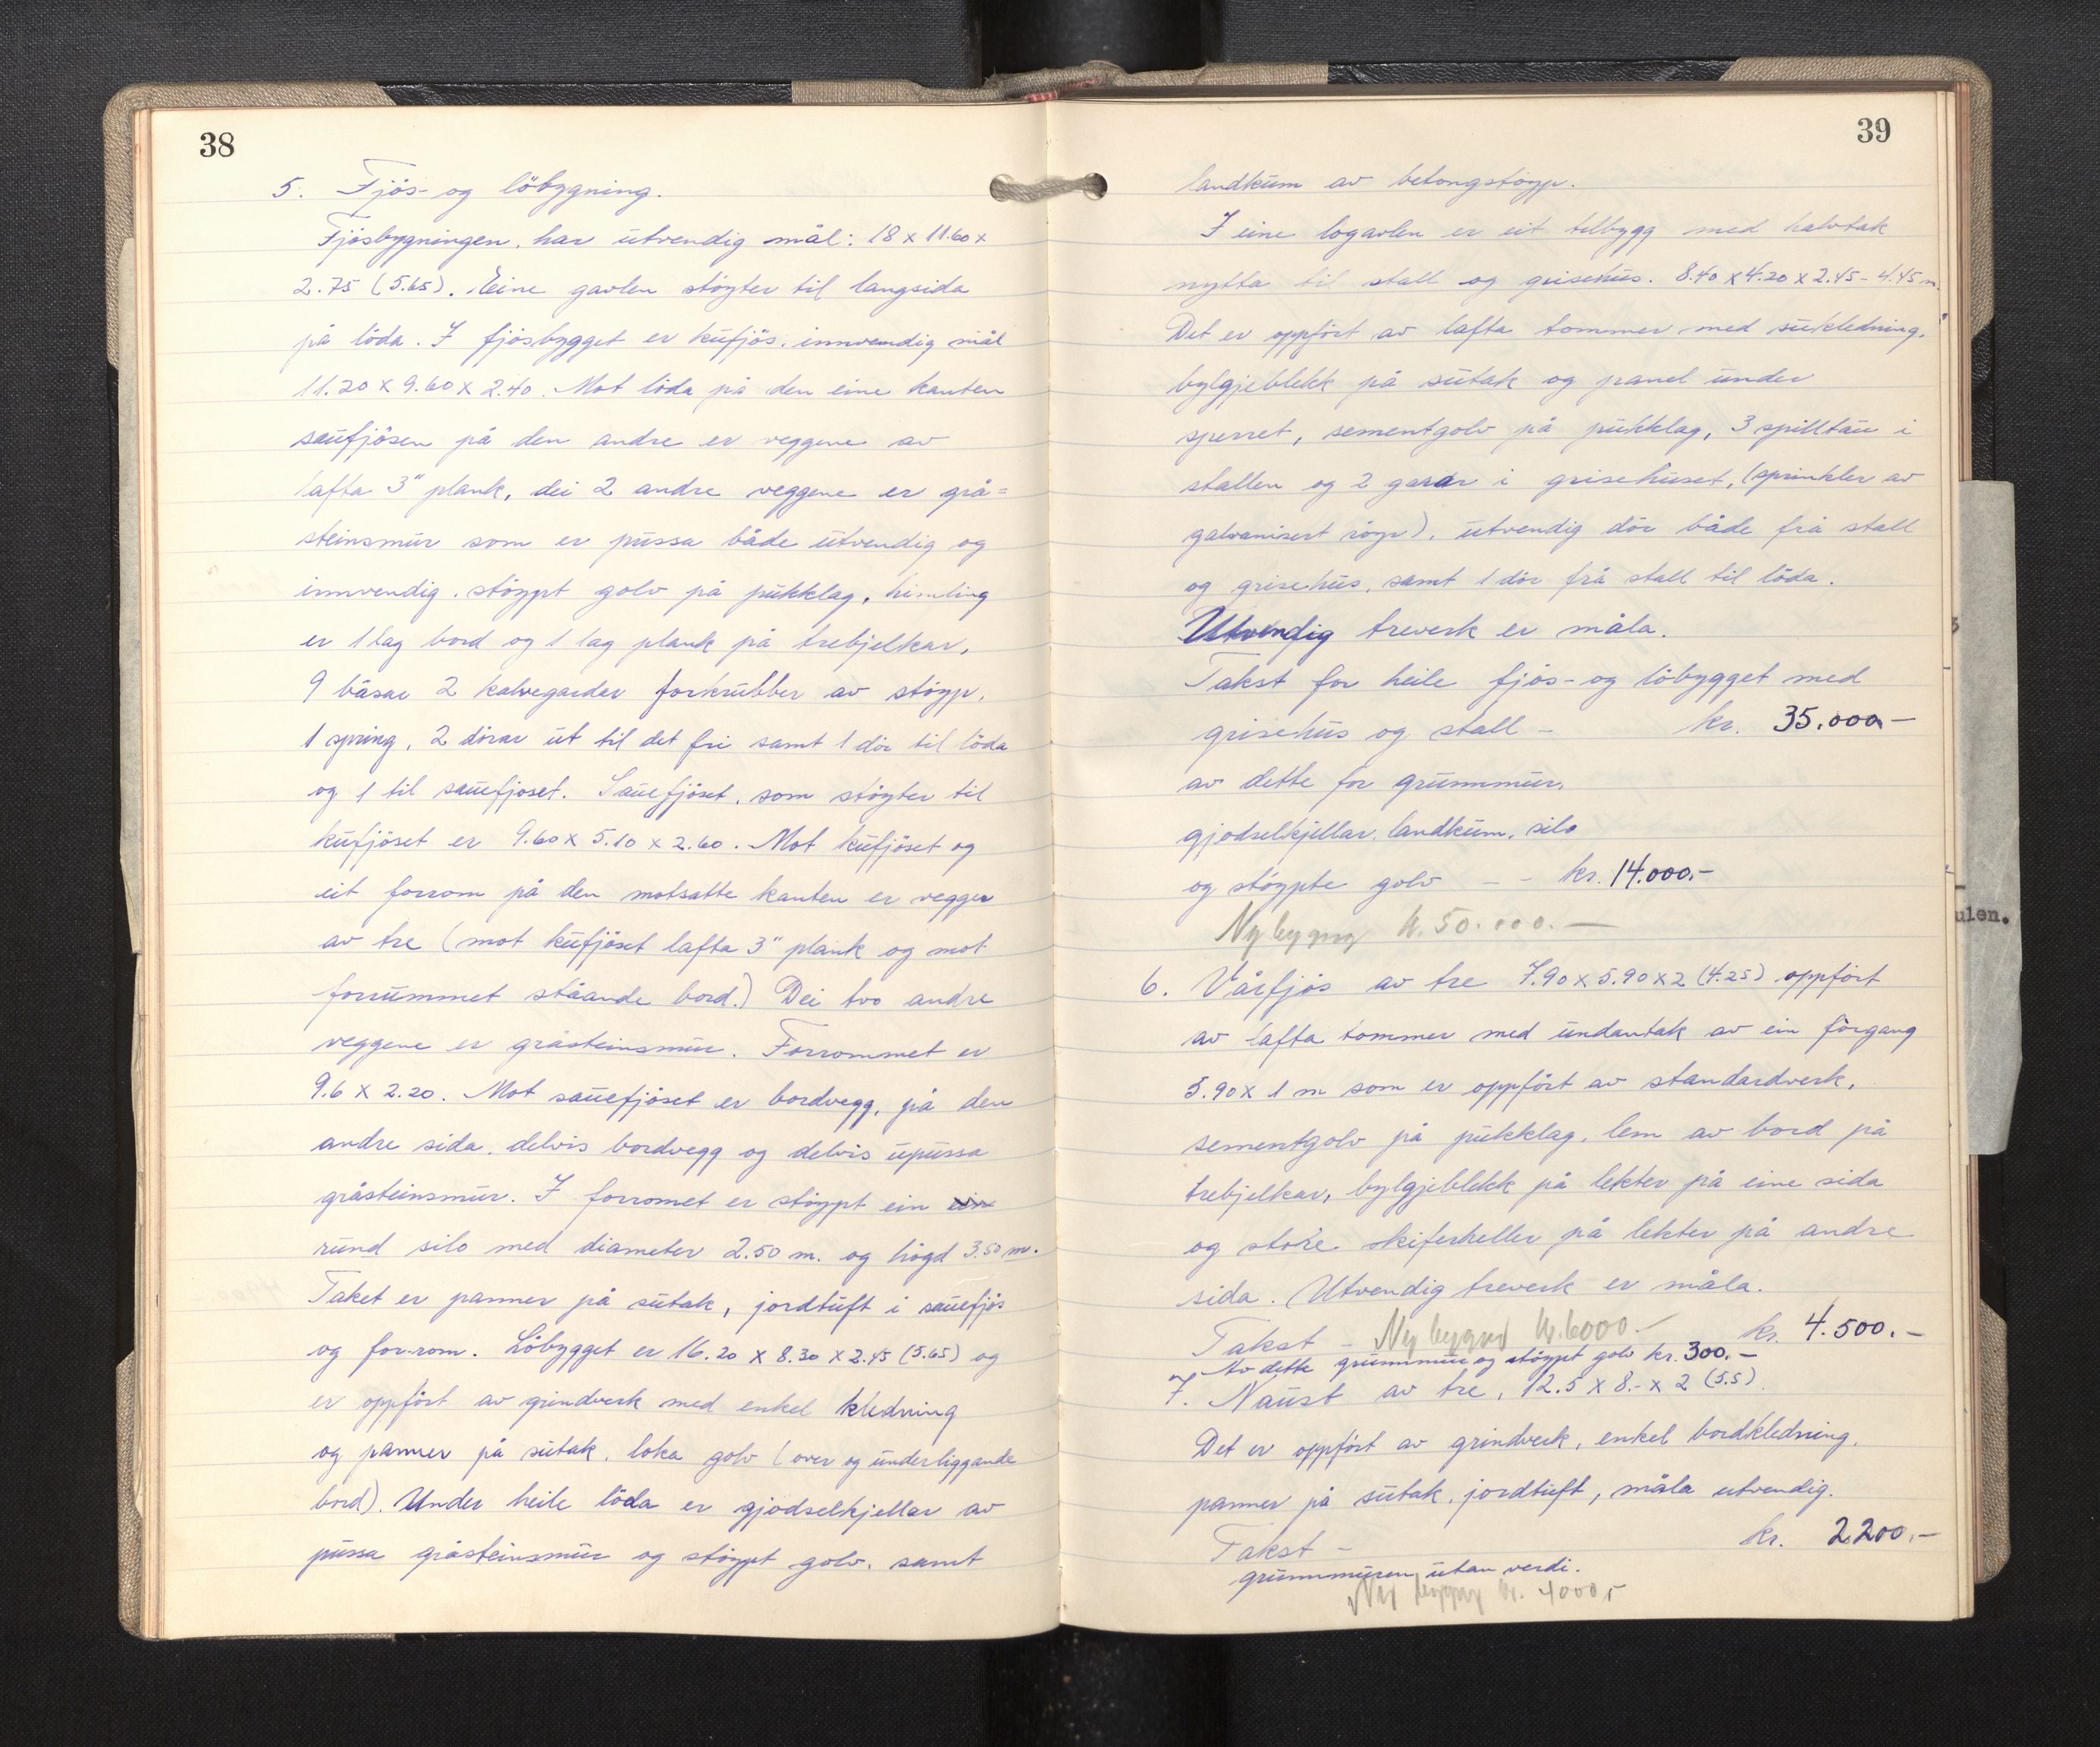 38
5. Fjös- og löbygning.
Fjösbygningen, har utvendig mål: 18 x 11.60 x
2.75 (5.65). Eine gavlen stöyter til langsida
på löda. I fjösbygget er kufjös, innvendig mål
11.20 x 9.60 x 2.40. Mot löda på den eine kanten
saufjösen på den andre er veggene av
lafta 3" plank, dei 2 andre veggene er grå=
steinsmur som er pussa både utvendig og
innvendig. stöypt golv på pukklag, himling
er 1 lag bord og 1 lag plank på trebjelkar,
9 båsar 2 kalvegardar forkrubber av stöyp,
1 spring, 2 dörar ut til det fri samt 1 dör til löda
og 1 til sauefjöset. Sauefjöset, som stöyter til
kufjöset er 9.60 x 5.10 x 2.60. Mot kufjöset og
eit forrom på den motsatte kanten er vegger
av tre (mot kufjöset lafta 3" plank og mot
forrummet ståande bord.) Dei tvo andre
veggene er gråsteinsmur. Forrommet er
9.6 x 2.20. Mot sauefjöset er bordvegg, på den
andre sida, delvis bordvegg og delvis upussa
gråsteinsmur. I forromet er stöypt ein ein
rund silo med diameter 2.50 m. og högd 3.50 m.
Taket er panner på sutak, jordtuft i sauefjös
og forrom. Löbygget er 16.20 x 8.30 x 2.45 (5.65) og
er oppfört av grindverk med enkel kledning
og panner på sutak, loka golv (over og underliggande
bord). Under heile löda er gjödselkjellar av
pussa gråsteinsmur og stöypt golv, samt
39
landkum av betongstöyp.
I eine lögavlen er eit tilbygg med halvtak
nytta til stall og grisehus. 8.40 x 4.20 x 2.45 - 4.45 m.
Det er oppfört av lafta tömmer med sukledning,
bylgjeblekk på sutak og panel under
sperret, sementgolv på pukklag, 3 spilltau i
stallen og 2 garar i grisehuset, (sprinkler av
galvanisert röyr), utvendig dör både frå stall
og grisehus, samt 1 dör frå stall til löda.
Utvendig treverk er måla.
Takst for heile fjös- og löbygget med
grisehus og stall - kr. 35.000-
av dette for grunnmur,
gjödselkjellar, landkum, silo
og stöypte golv - - kr. 14.000.-
Nybygg kr. 50.000.-
6. Vårfjös av tre 7.90 x 5.90 x 2 (4.25) oppfört
av lafta tömmer med undantak av ein förgang
5.90 x 1 m som er oppfört av standardverk,
sementgolv på pukklag, lem av bord på
trebjelkar, bylgjeblekk på lekter på eine sida
og store skiferheller på lekter på andre
sida. Utvendig treverk er måla.
Takst - Nybygd kr. 6000.- kr. 4.500.-
Av dette grunnmur og stöypt golv kr. 300.-
7. Naust av tre, 12.5 x 8.- x 2 (5.5).
Det er oppfört av grindverk, enkel bordkledning,
panner på sutak, jordtuft, måla utvendig.
Takst - kr. 2200.-
grunnmuren utan verdi.
Ny bygg kr. 4000,-
ulen.